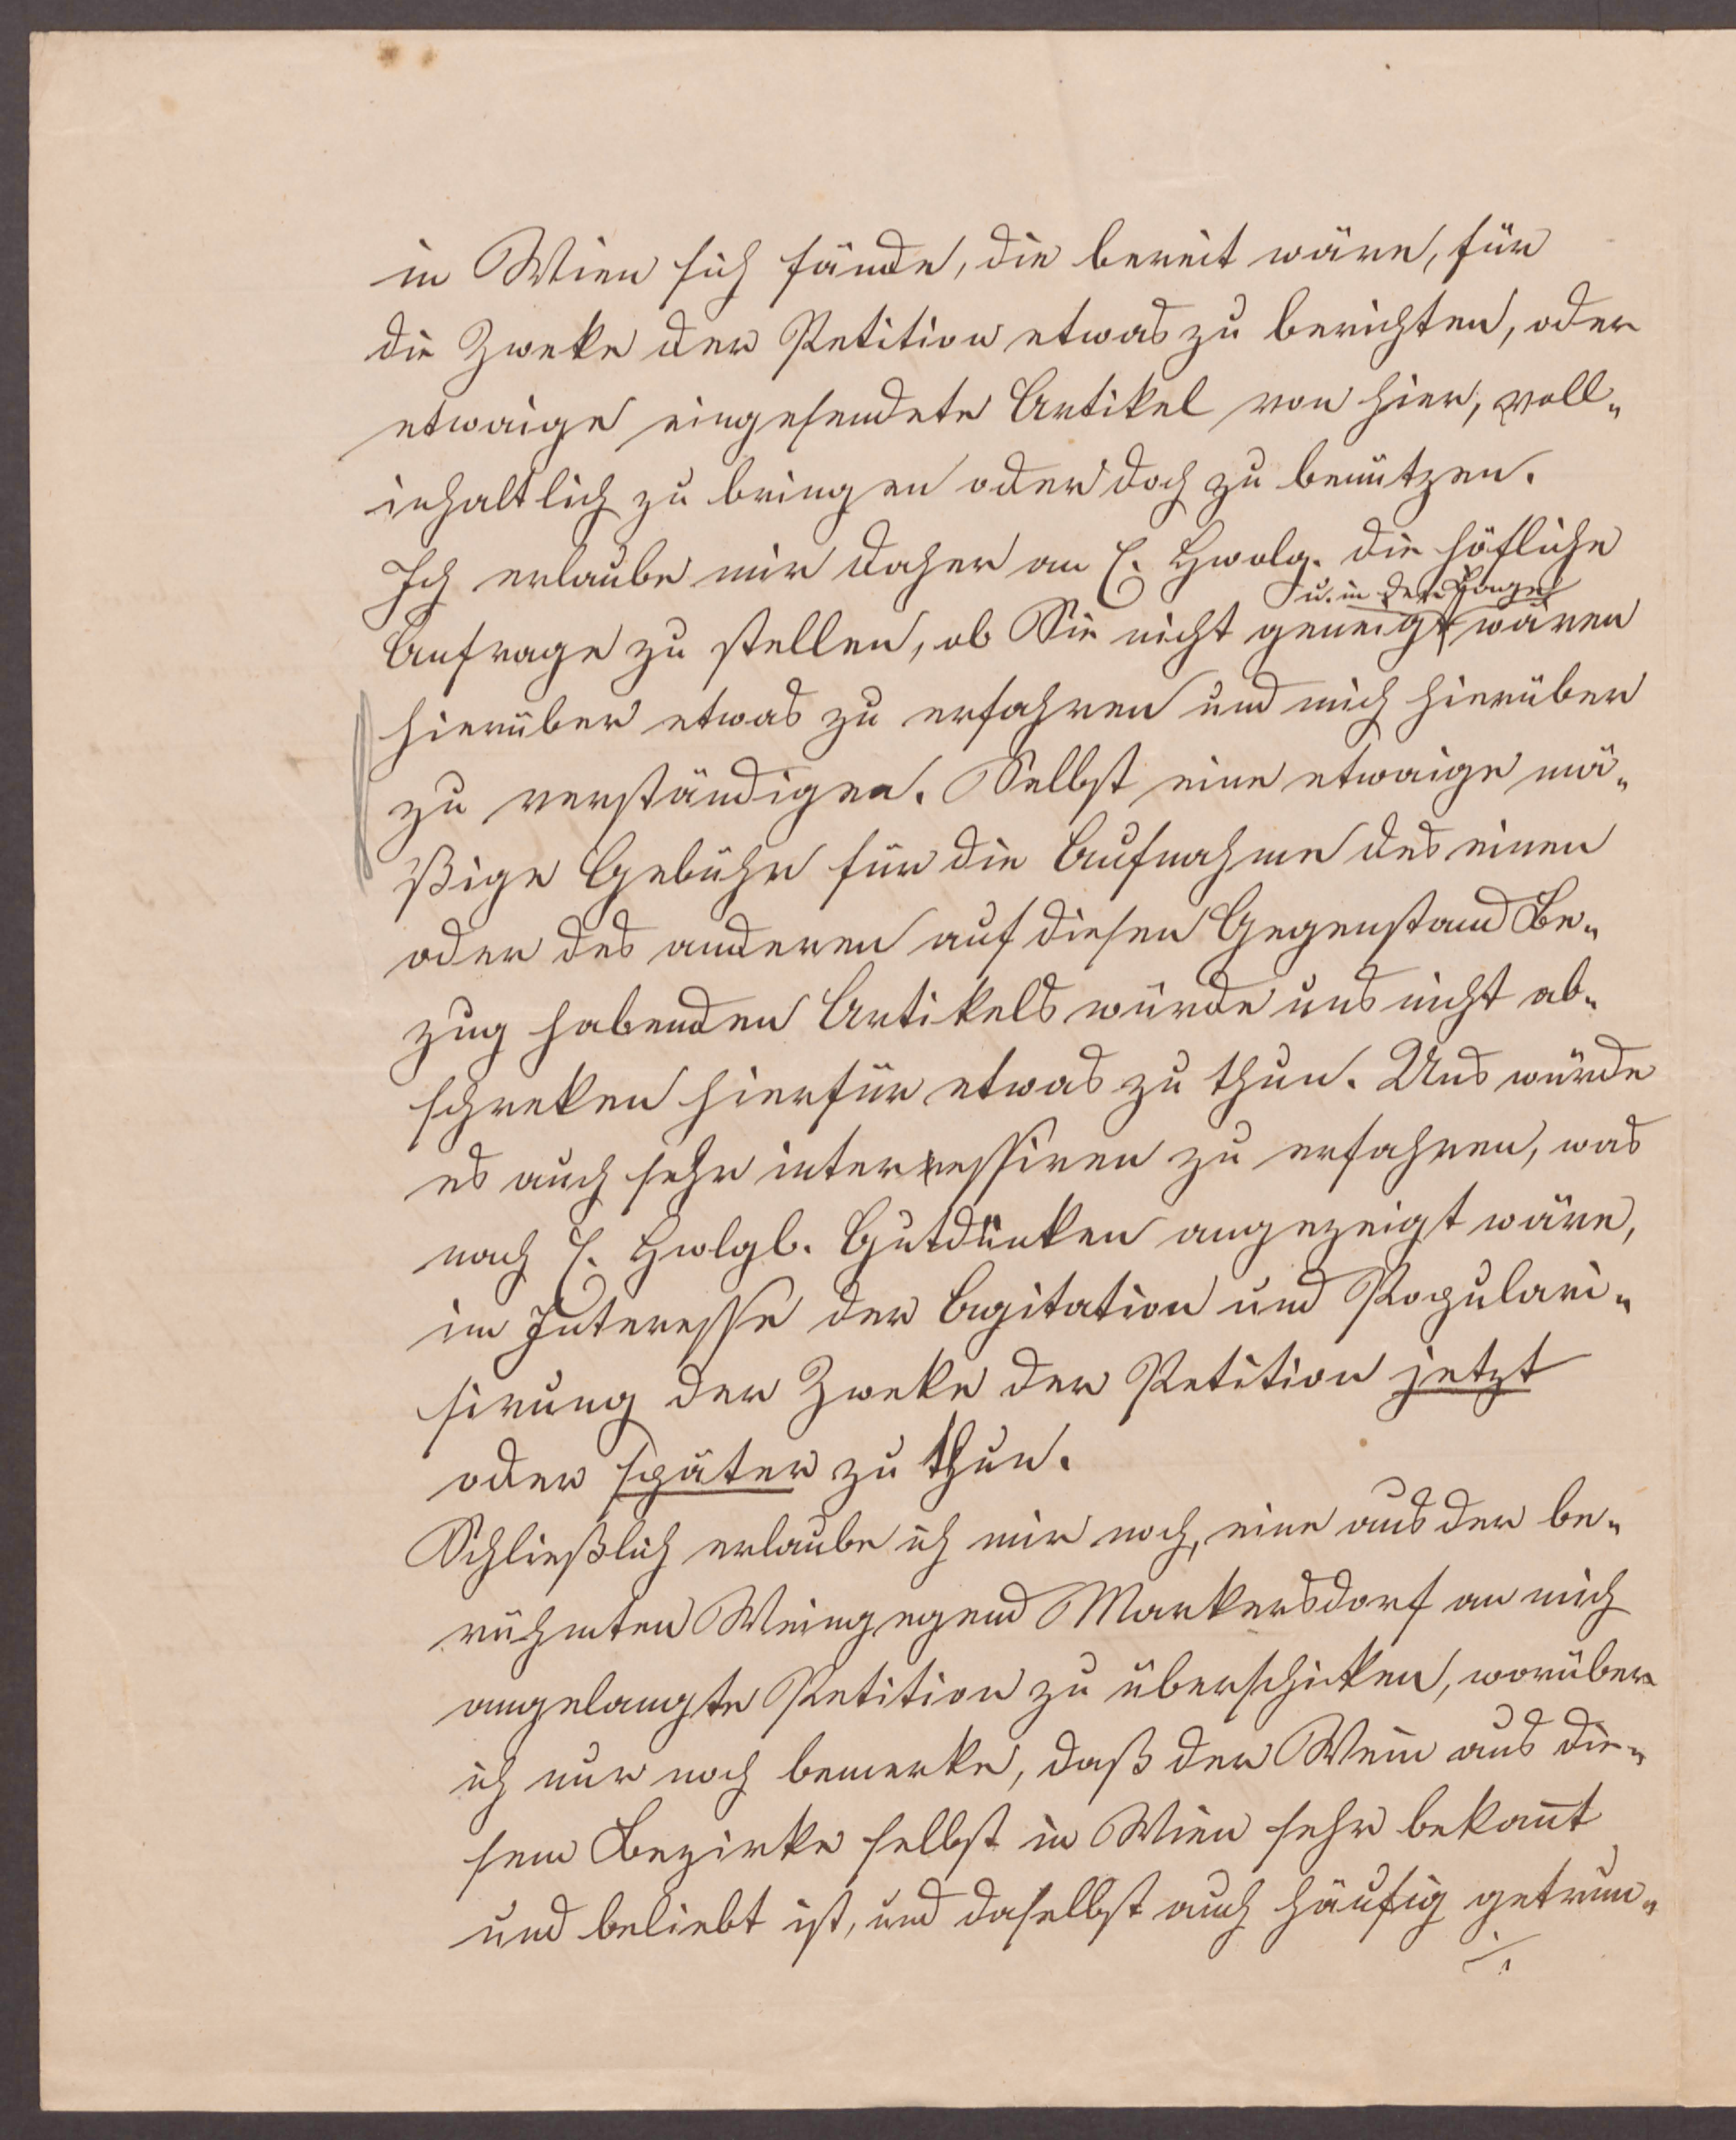 in Wien sich fände, die bereit wäre, für
die Zweke der Petition etwas zu berichten, oder
etwaige eingesendete Artikel von hier, voll-
inhaltlich zu bringen oder doch zu benützen.
Ich erlaube mir daher an E. Hwolg. die höfliche
u. in der Lage
Anfrage zu stellen, ob Sie nicht geneigt wären
hierüber etwas zu erfahren und mich hierüber
zu verständigen. Selbst eine etwaige mä-
ßige Gebühr für die Aufnahme des einen
oder des anderen auf diesen Gegenstand Be-
zug habenden Artikels würde uns nicht ab-
schreken hierfür etwas zu thun. Uns würde
es auch sehr interressiren zu erfahren, was
nach E. Hwlgb. Gutdünken angezeigt wäre,
im Interesse der Agitation und Populari-
sirung der Zweke der Petition jetzt
oder später zu thun.
Schließlich erlaube ich mir noch, eine aus der be-
rühmten Weingegend Markersdorf an mich
angelangte Petition zu überschicken, worüber
ich nur noch bemerke, daß der Wein aus die-
sem Bezirke selbst in Wien sehr bekan̄t
und beliebt ist, und daselbst auch häufig getrun-
./.